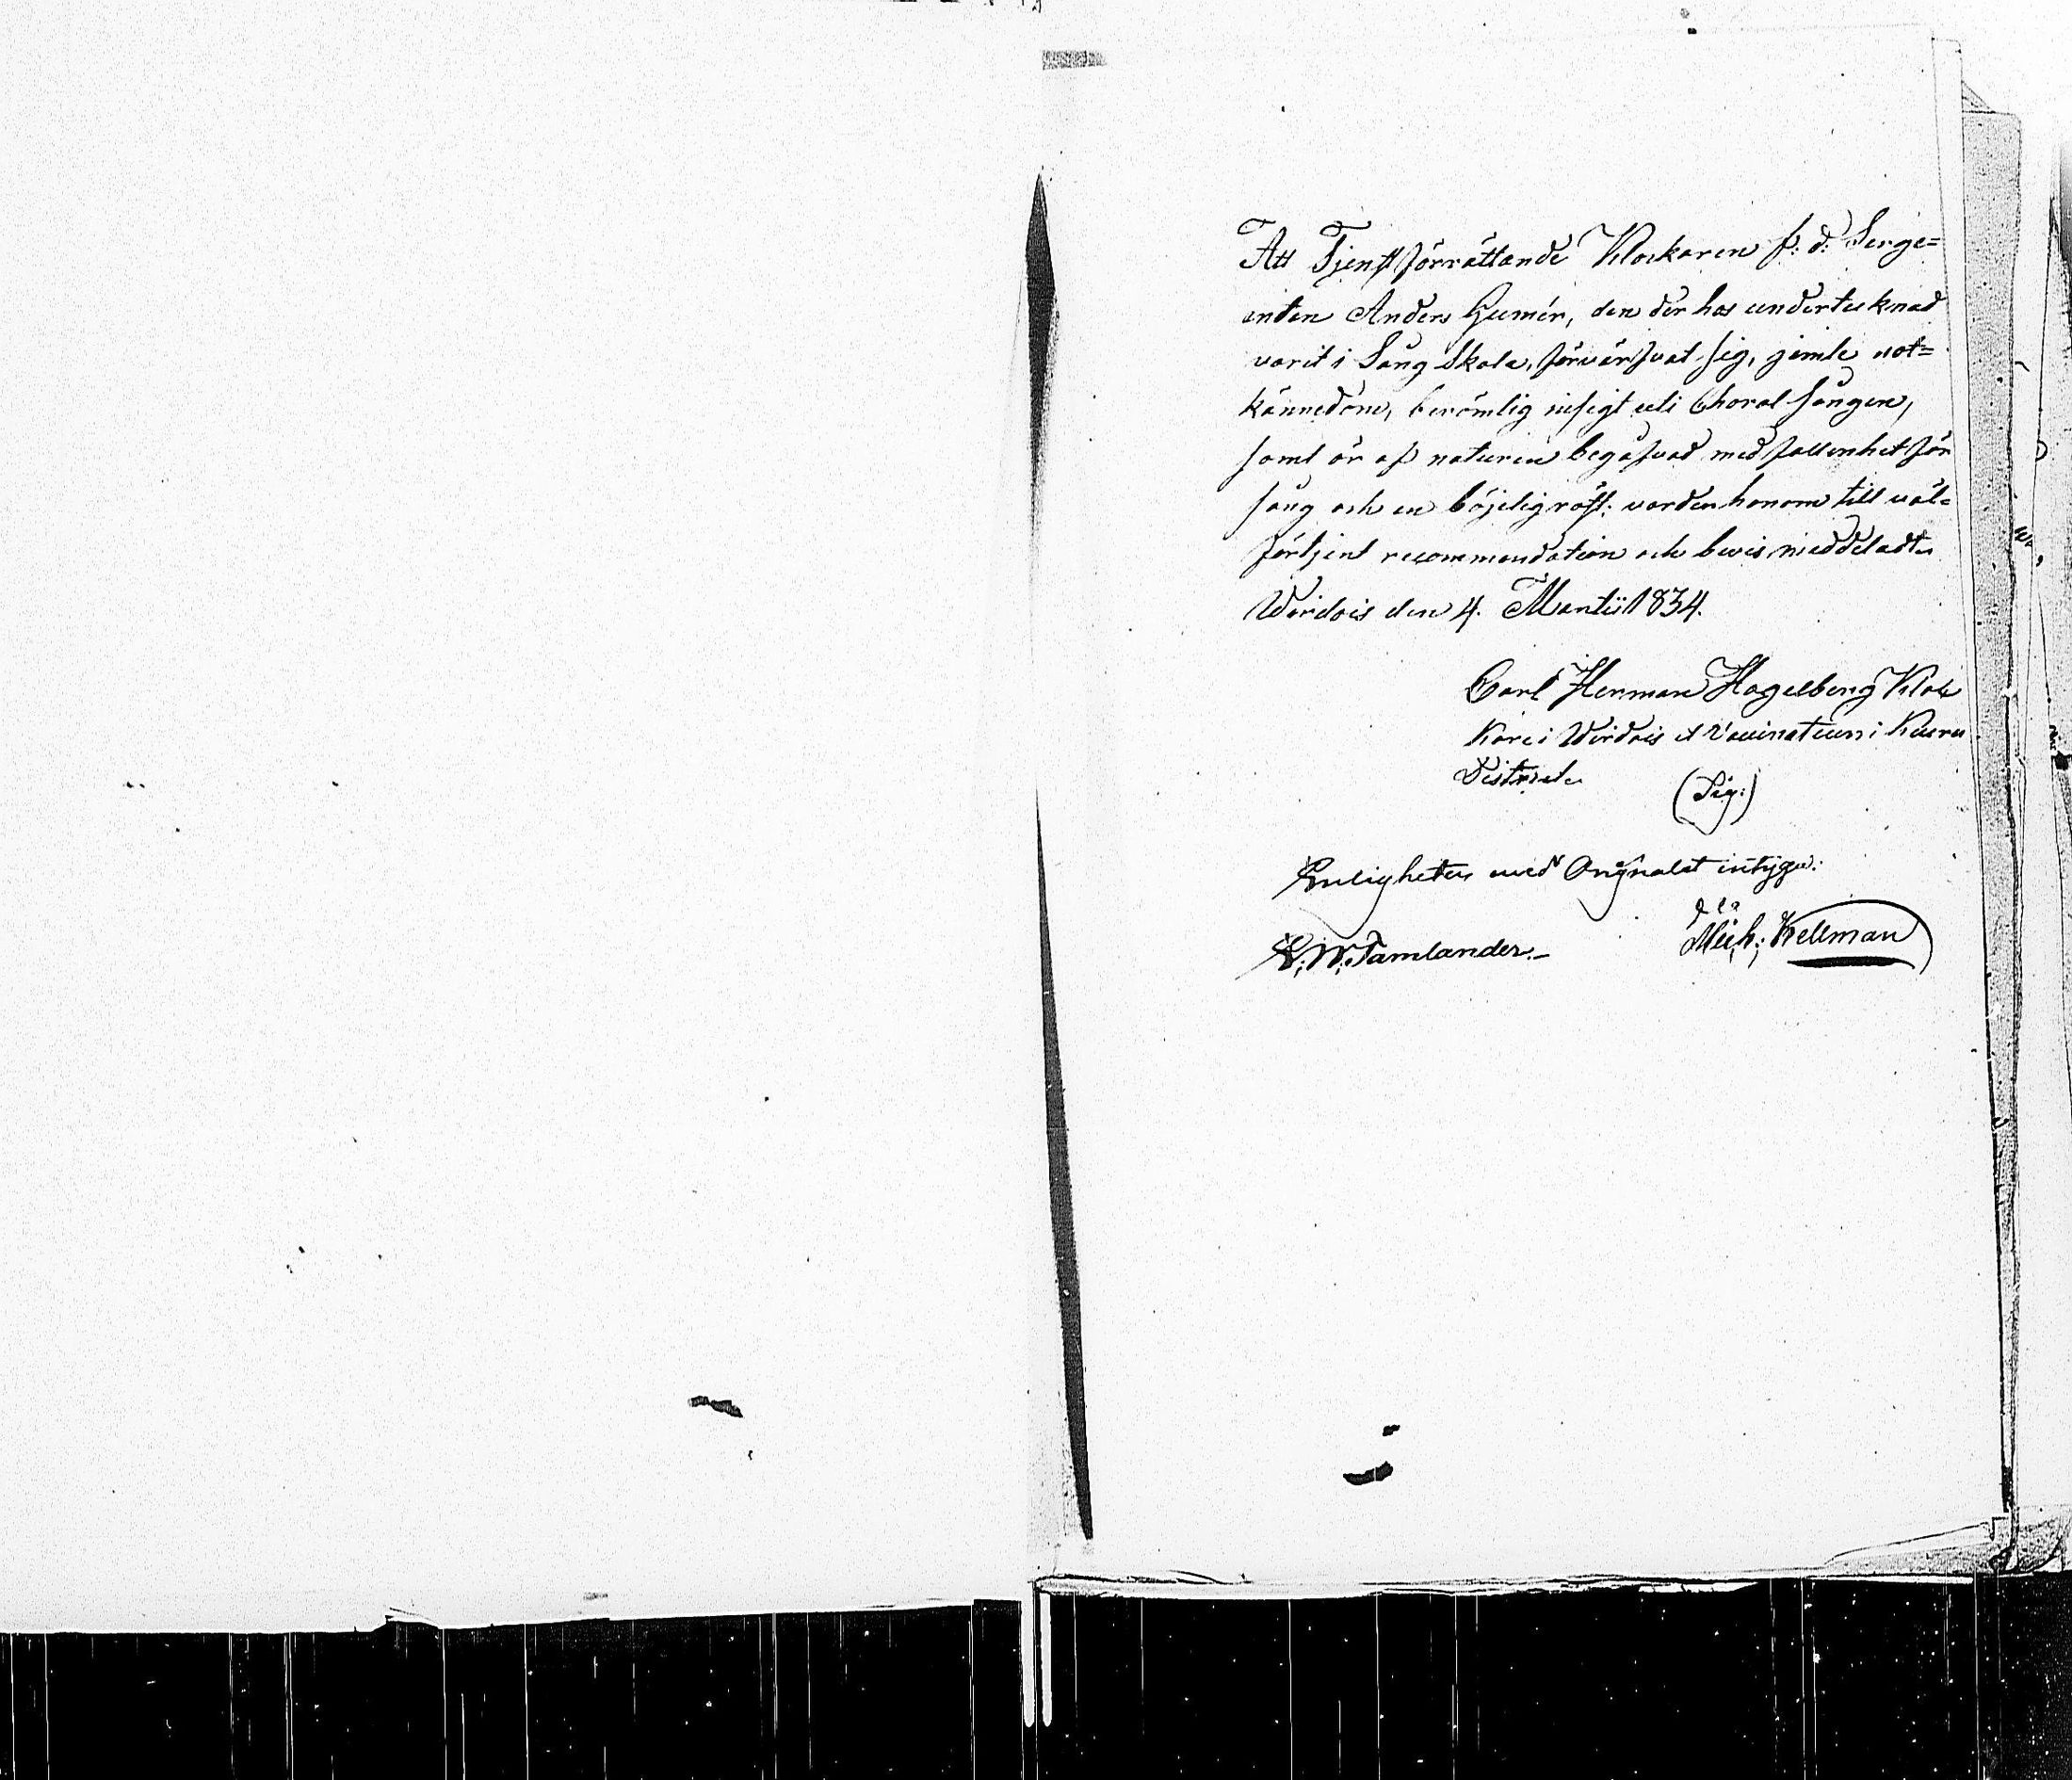 Att Tjenstförrättande Klockaren f: d: Serge=
enten Anders Gumér, den der hos undertecknad
varit i Sång Skola, förvärfvat sig, jemte not=
kännedom, berömlig insigt uti Choral sången,
samt är af naturen begåfvad med fallenhet för
sång och en böjelig röst: varder honom till väl=
förtjent recommendation och bevis meddeladt.
Wirdois den 4. Martii 1834.
Carl Herman Hagelberg Kloc
kare i Wirdois et Vaccinateur i Kuru
District.
(Sig:)
Enligheten med Originalet intyga:
E: W: Tamlander.
Mich: Kellman